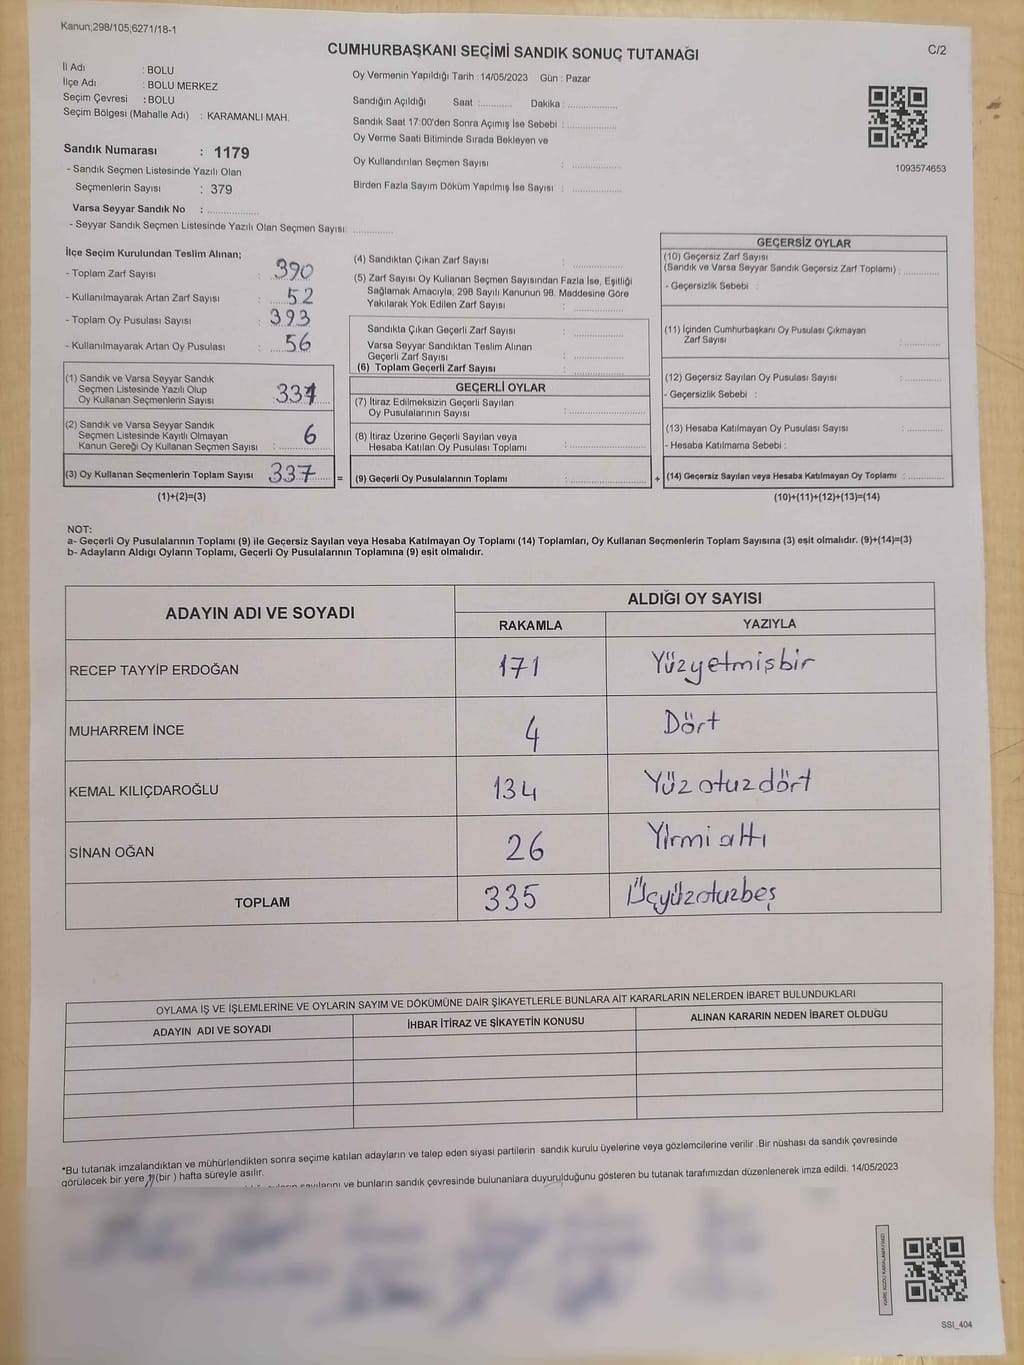 Kanun;298/105;6271/18-1
CUMHURBAŞKANI SEÇİMİ SANDIK SONUÇ TUTANAĞI
C/2
İl Adı : BOLU
İlçe Adı : BOLU MERKEZ
Seçim Çevresi : BOLU
Seçim Bölgesi (Mahalle Adı) : KARAMANLI MAH.
Sandık Numarası : 1179
- Sandık Seçmen Listesinde Yazılı Olan
Seçmenlerin Sayısı : 379
Varsa Seyyar Sandık No : ..................
- Seyyar Sandık Seçmen Listesinde Yazılı Olan Seçmen Sayısı: ..............
Oy Vermenin Yapıldığı Tarih : 14/05/2023 Gün : Pazar
Sandığın Açıldığı Saat :........... Dakika : ..................
Sandık Saat 17:00'den Sonra Açımış İse Sebebi : ..................
Oy Verme Saati Bitiminde Sırada Bekleyen ve
Oy Kullandırılan Seçmen Sayısı : ..................
Birden Fazla Sayım Döküm Yapılmış İse Sayısı : ..................
1093574653
İlçe Seçim Kurulundan Teslim Alınan;
- Toplam Zarf Sayısı : 390
- Kullanılmayarak Artan Zarf Sayısı : 52
- Toplam Oy Pusulası Sayısı : 393
- Kullanılmayarak Artan Oy Pusulası : 56
(1) Sandık ve Varsa Seyyar Sandık
Seçmen Listesinde Yazılı Olup
Oy Kullanan Seçmenlerin Sayısı :
(2) Sandık ve Varsa Seyyar Sandık
Seçmen Listesinde Kayıtlı Olmayan
Kanun Gereği Oy Kullanan Seçmen Sayısı : 6
(3) Oy Kullanan Seçmenlerin Toplam Sayısı 337 =
(1)+(2)=(3)
(4) Sandıktan Çıkan Zarf Sayısı : ..................
(5) Zarf Sayısı Oy Kullanan Seçmen Sayısından Fazla İse, Eşitliği
Sağlamak Amacıyla, 298 Sayılı Kanunun 98. Maddesine Göre
Yakılarak Yok Edilen Zarf Sayısı : ..................
Sandıkta Çıkan Geçerli Zarf Sayısı : ..................
Varsa Seyyar Sandıktan Teslim Alınan
Geçerli Zarf Sayısı : ..................
(6) Toplam Geçerli Zarf Sayısı : ..................
GEÇERLİ OYLAR
(7) İtiraz Edilmeksizin Geçerli Sayılan
Oy Pusulalarının Sayısı : ..................
(8) İtiraz Üzerine Geçerli Sayılan veya
Hesaba Katılan Oy Pusulası Toplamı : ..................
(9) Geçerli Oy Pusulalarının Toplamı : .................. +
GEÇERSİZ OYLAR
(10) Geçersiz Zarf Sayısı
(Sandık ve Varsa Seyyar Sandık Geçersiz Zarf Toplamı) : ..............
- Geçersizlik Sebebi :
(11) İçinden Cumhurbaşkanı Oy Pusulası Çıkmayan
Zarf Sayısı : ..............
(12) Geçersiz Sayılan Oy Pusulası Sayısı : ..............
- Geçersizlik Sebebi :
(13) Hesaba Katılmayan Oy Pusulası Sayısı : ..............
- Hesaba Katılmama Sebebi :
(14) Geçersiz Sayılan veya Hesaba Katılmayan Oy Toplamı : ..............
(10)+(11)+(12)+(13)=(14)
NOT:
a- Geçerli Oy Pusulalarının Toplamı (9) ile Geçersiz Sayılan veya Hesaba Katılmayan Oy Toplamı (14) Toplamları, Oy Kullanan Seçmenlerin Toplam Sayısına (3) eşit olmalıdır. (9)+(14)=(3)
b- Adayların Aldığı Oyların Toplamı, Geçerli Oy Pusulalarının Toplamına (9) eşit olmalıdır.
ADAYIN ADI VE SOYADI
ALDIĞI OY SAYISI
RAKAMLA YAZIYLA
RECEP TAYYİP ERDOĞAN 171 Yüzyetmişbir
MUHARREM İNCE 4 Dört
KEMAL KILIÇDAROĞLU 134 Yüzotuzdört
SİNAN OĞAN 26 Yirmialtı
TOPLAM 335 Üçyüzotuzbeş
OYLAMA İŞ VE İŞLEMLERİNE VE OYLARIN SAYIM VE DÖKÜMÜNE DAİR ŞİKAYETLERLE BUNLARA AİT KARARLARIN NELERDEN İBARET BULUNDUKLARI
ADAYIN ADI VE SOYADI İHBAR İTİRAZ VE ŞİKAYETİN KONUSU ALINAN KARARIN NEDEN İBARET OLDUĞU
*Bu tutanak imzalandıktan ve mühürlendikten sonra seçime katılan adayların ve talep eden siyasi partilerin sandık kurulu üyelerine veya gözlemcilerine verilir .Bir nüshası da sandık çevresinde
görülecek bir yere (bir ) hafta süreyle asılır.
ve bunların sandık çevresinde bulunanlara duyurulduğunu gösteren bu tutanak tarafımızdan düzenlenerek imza edildi. 14/05/2023
SSI_404